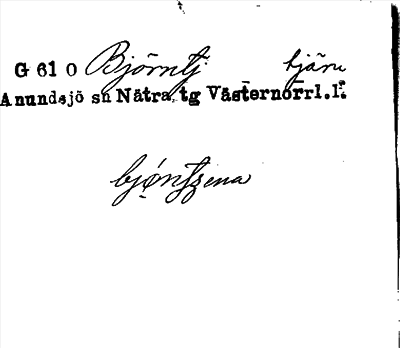 G 61 0 Björntj tjärn
Anundsjö sn Nätra tg Västernorrl.l.